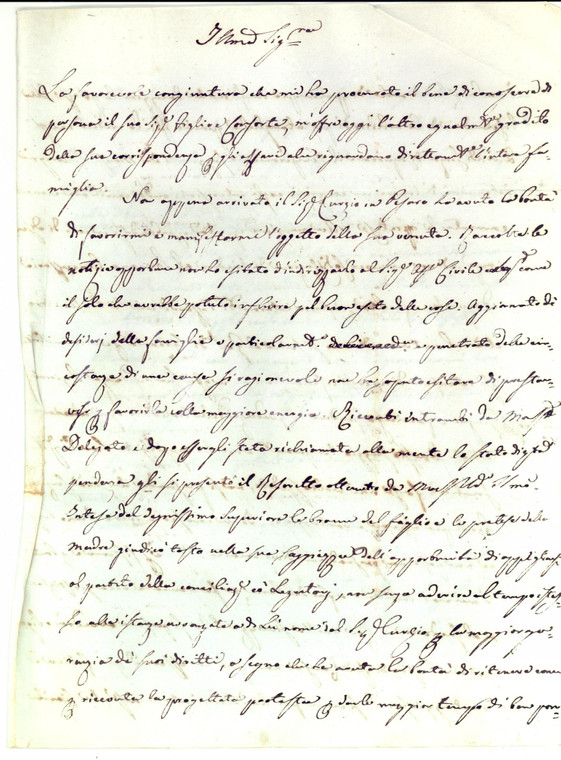 Illmo Sig.re
La favorevole congiuntura che mi ha procurato il bene di conoscere di
persona il suo Sig.r figlio e Consorte, m'offre oggi l'altro egualm.e gradito
della sua corrispondenza p gli affari che riguardano direttam.e l'intera fa-
miglia.
Non appena arrivato il Sig.r Curzio in Pesaro ha avuto la bontà
di favorirmi e manifestarmi l'oggetto della sua venuta. Raccolte le
notizie opportune non ho esitato d'indirizzarlo al Sig.r Civile come
il solo che avrebbe potuto influire pel buon esito delle cose. Aggiornato di
desiderj della famiglia e particolarm.e e penetrato delle cir-
costanze di una causa sì ragionevole non ha saputo esitare di prestar-
visi p favorirla colla maggiore energia. Ricevuti entrambi da Mons.r
Delegato e dopo essergli stata richiamata alla mente lo stato di
pendenza gli si presentò il Rescritto ottenuto da
Intese dal degnissimo Superiore le brame del figlio e le preghiere della
Madre giudicò tosto nella sua saggezza dell'opportunità di appigliarsi
al partito della conciliaz.e co' Lazzarini, non senza aderire al tempo istes-
so alle istanze avanzate a di Lui nome dal Sig.r Curzio p la maggior ga-
ranzia de' suoi diritti, a segno che ha avuta la bontà di ritenere come
p ricevuta la progettata protesta p darle maggior tempo di ben pon-